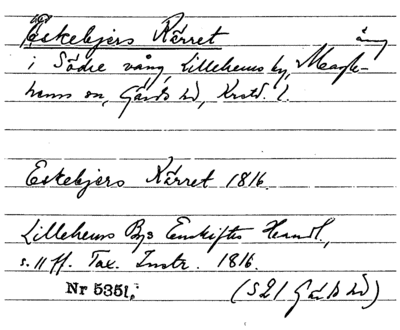 Eskebjers Kärret äng
i Södre vång, Lillehems by, Maglehems sn, Gärds hd, Krstd. l.
Eskebjers Kärret 1816.
Lillehems Bys Enskiftes Handl.,
s. 11 ff. Tax. Instr. 1816.
Nr 5351. (S21 Gärds hd)